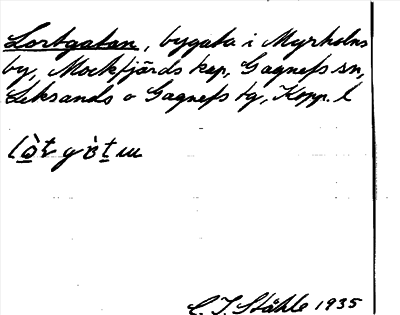 Lortgatan, bygata i Myrholns
by, Mockfjärds kap, Gagnefs sn,
Leksands o Gagnefs tg, Kopp. l
C. I. Ståhle 1935